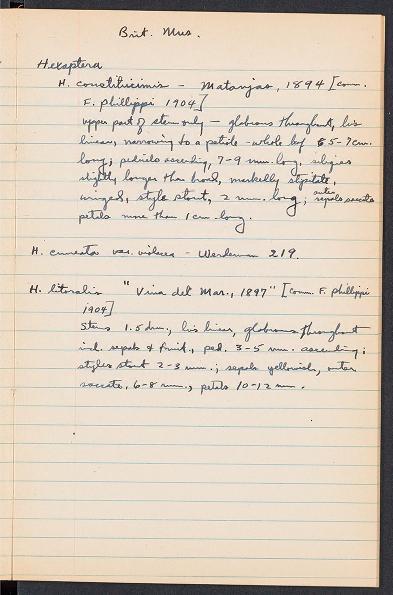 Brit. Mus.
Hexaptera
H. constitucionis - Matanzas, 1894 [Comm.
F. Phillippi 1904]
upper part of stem only - glabrous throughout, lvs
linear, narrowing to a petiole - whole leaf 5-7 cm.
long; pedicels ascending, 7-9 mm. long, siliques
slightly longer than broad, markedly stipitate,
winged, style stout, 2 mm. long; outer sepals saccate
petals more than 1 cm. long.
H. cuneata var. violacea - Werderman 219.
H. litoralis "Vina del Mar, 1897" [Comm. F. Phillippi
1904]
Stems 1.5 dm., lvs linear, glabrous throughout
incl. sepals & fruit, ped. 3-5 mm. ascending;
styles stout 2-3 mm.; sepals yellowish, outer
saccate, 6-8 mm., petals 10-12 mm.